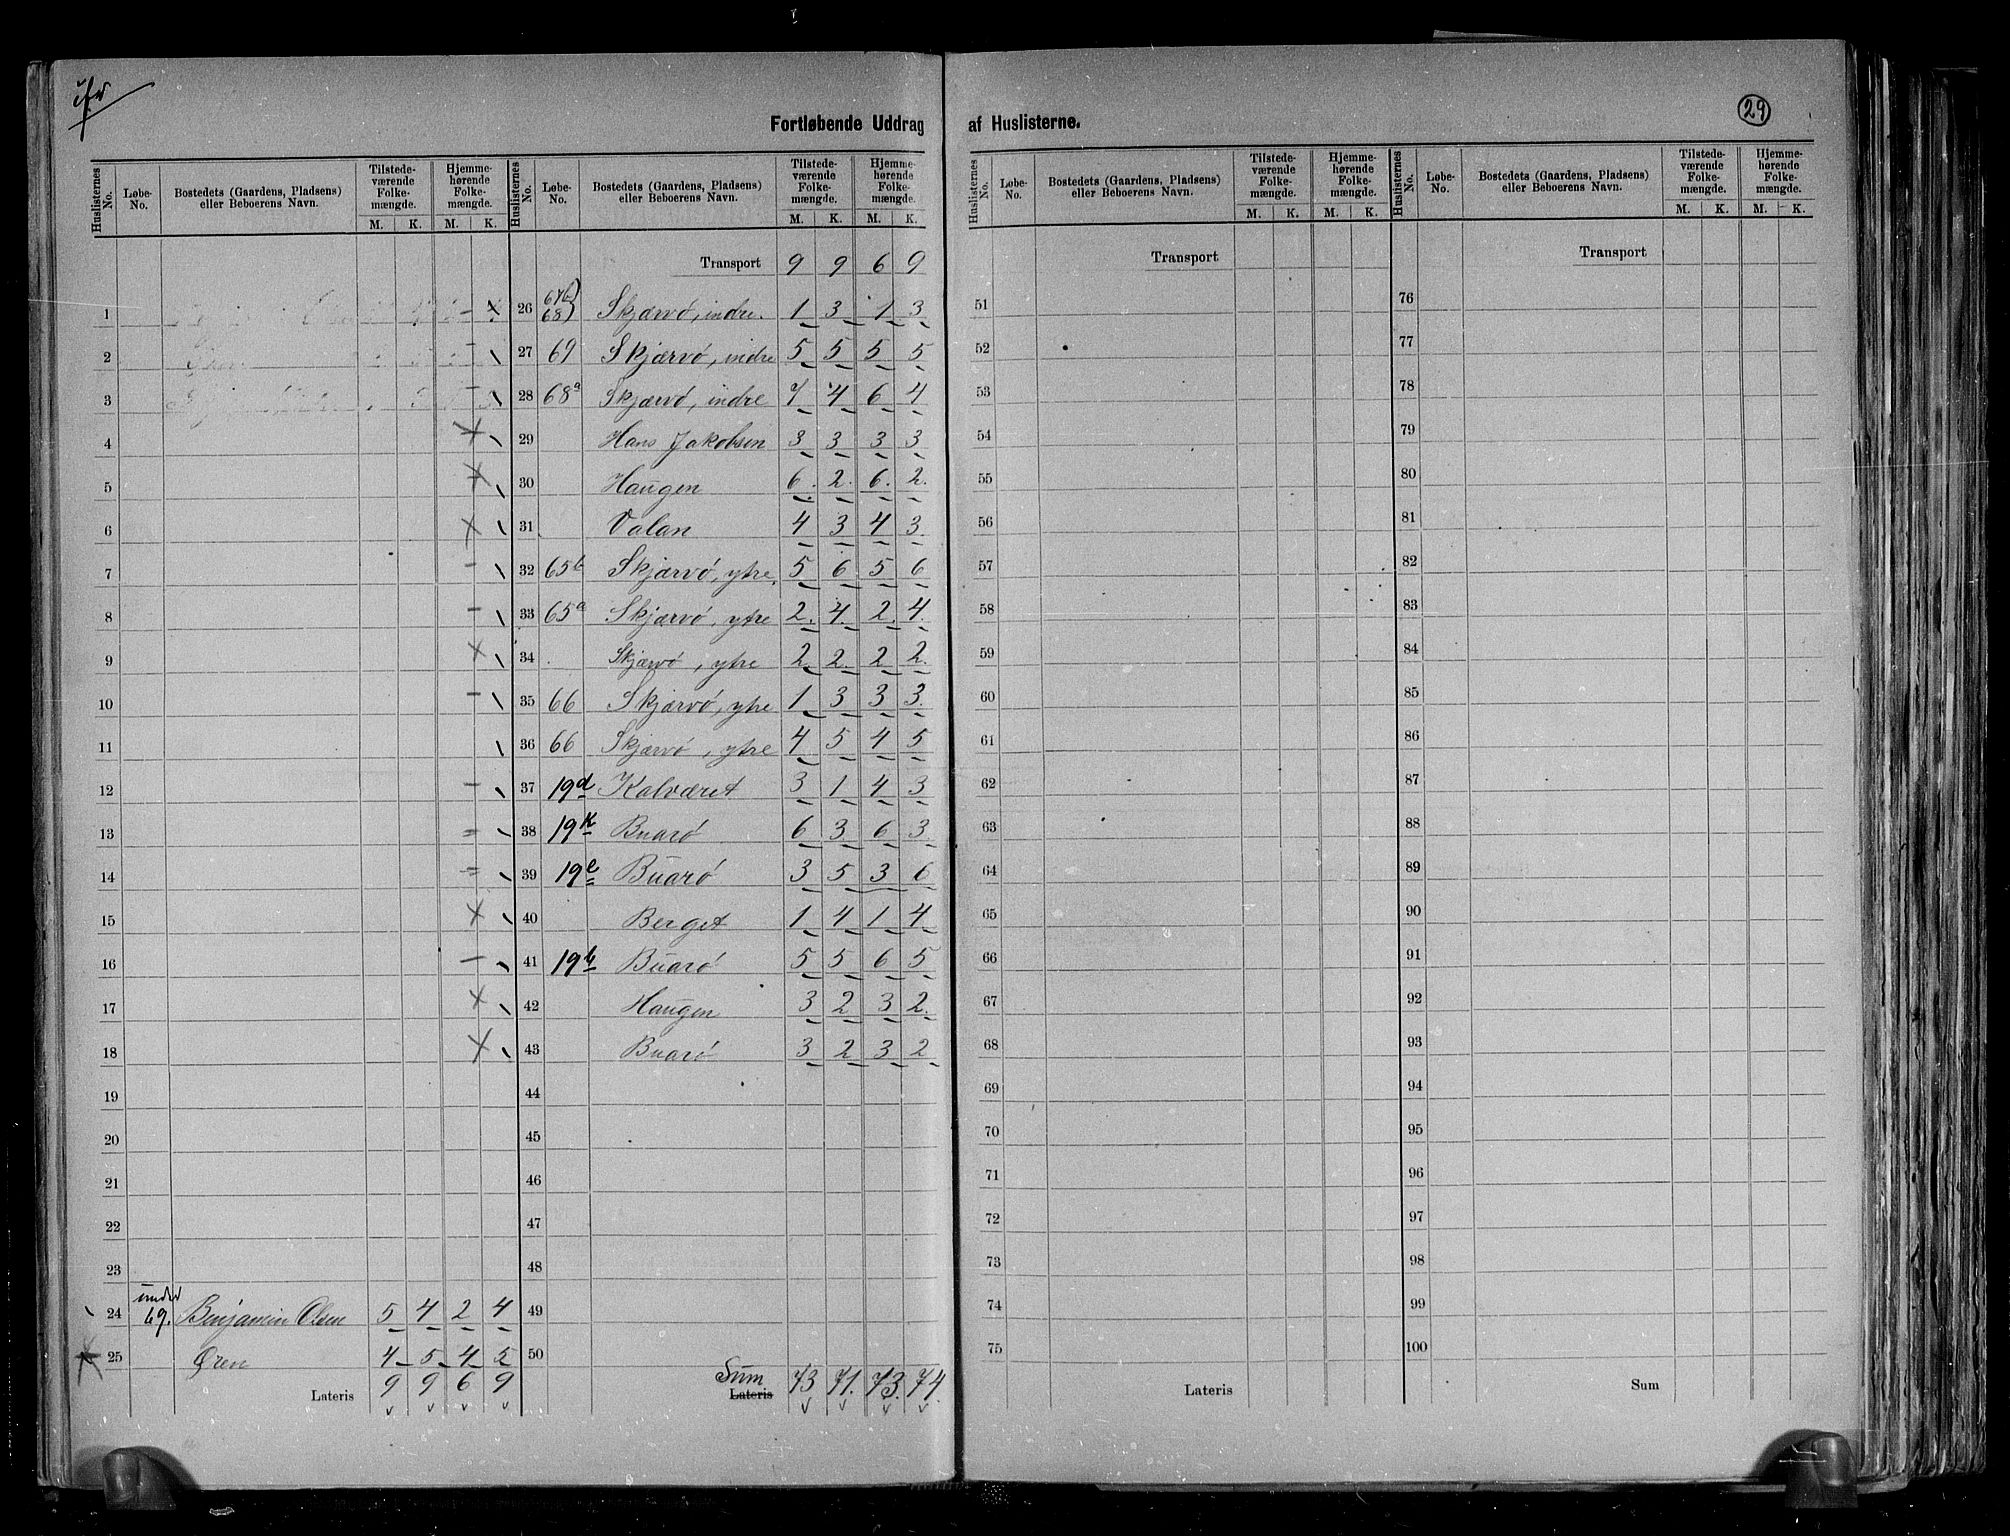 29
Fortløbende Uddrag af Huslisterne.
Huslisternes No. Løbe-No. Bostedets (Gaardens, Pladsens) eller Beboerens Navn. Tilstede-værende Folke-mængde. M. K. Hjemme-hørende Folke-mængde. M. K.
1
2
3
4
5
6
7
8
9
10
11
12
13
14
15
16
17
18
19
20
21
22
23
24 under 69. Benjamin Olsen 5 4 2 4
25 Øren 4 5 4 5
Lateris 9 9 6 9
Huslisternes No. Løbe-No. Bostedets (Gaardens, Pladsens) eller Beboerens Navn. Tilstede-værende Folke-mængde. M. K. Hjemme-hørende Folke-mængde. M. K.
Transport 9 9 6 9
26 68 Skjærvö, indre. 1 3 1 3
27 69 Skjærvö, indre 5 5 5 5
28 68a Skjærvö, indre 7 4 6 4
29 Hans Jakobsen 3 3 3 3
30 Haugen 6. 2. 6. 2.
31 Valan 4 3 4 3
32 65b Skjærvö, ytre. 5 6 5 6
33 65a Skjærvö, ytre 2. 4. 2. 4.
34 Skjærvö, ytre 2 2. 2 2.
35 66 Skjærvö, ytre 1 3 3 3.
36 66 Skjærvö, ytre 4 5 4 5
37 19d Kalværet 3 1 4 3
38 19k Buarö 6 3 6 3
39 19e Buarö 3 5 3 6
40 Berget 1 4 1 4
41 19h Buarö 5 5 6 5
42 Haugen 3 2 3 2.
43 Buarö 3 2 3 2
44
45
46
47
48
49
50
Sum Lateris 73 71. 73. 74.
Huslisternes No. Løbe-No. Bostedets (Gaardens, Pladsens) eller Beboerens Navn. Tilstede-værende Folke-mængde. M. K. Hjemme-hørende Folke-mængde. M. K.
Transport
51
52
53
54
55
56
57
58
59
60
61
62
63
64
65
66
67
68
69
70
71
72
73
74
75
Lateris
Huslisternes No. Løbe-No. Bostedets (Gaardens, Pladsens) eller Beboerens Navn. Tilstede-værende Folke-mængde. M. K. Hjemme-hørende Folke-mængde. M. K.
Transport
76
77
78
79
80
81
82
83
84
85
86
87
88
89
90
91
92
93
94
95
96
97
98
99
100
Sum